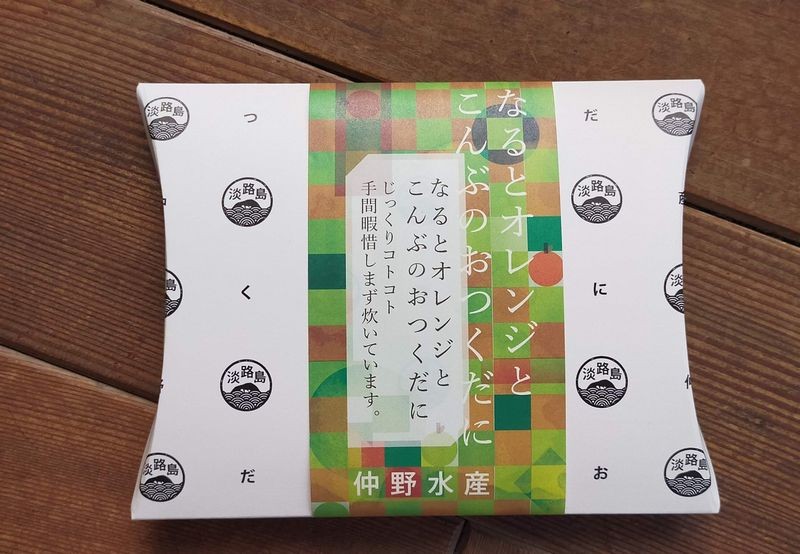 なるとオレンジと
こんぶのおつくだに
なるとオレンジと
こんぶのおつくだに
じっくりコトコト
手間暇惜しまず炊いています。
仲野水産
だ
に
お
つ
く
だ
淡路島
淡路島
淡路島
淡路島
淡路島
淡路島
淡路島
淡路島
淡路島
淡路島